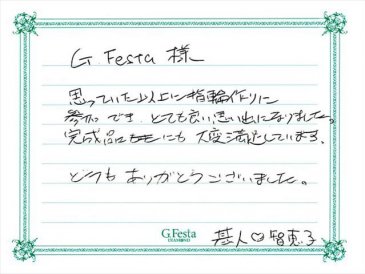 G.Festa 様
思っていた以上に指輪作りに
参加でき、とても良い思い出になりました。
完成品にも大変満足しています。
どうもありがとうございました。
G.Festa
DIAMOND
基人♡智恵子